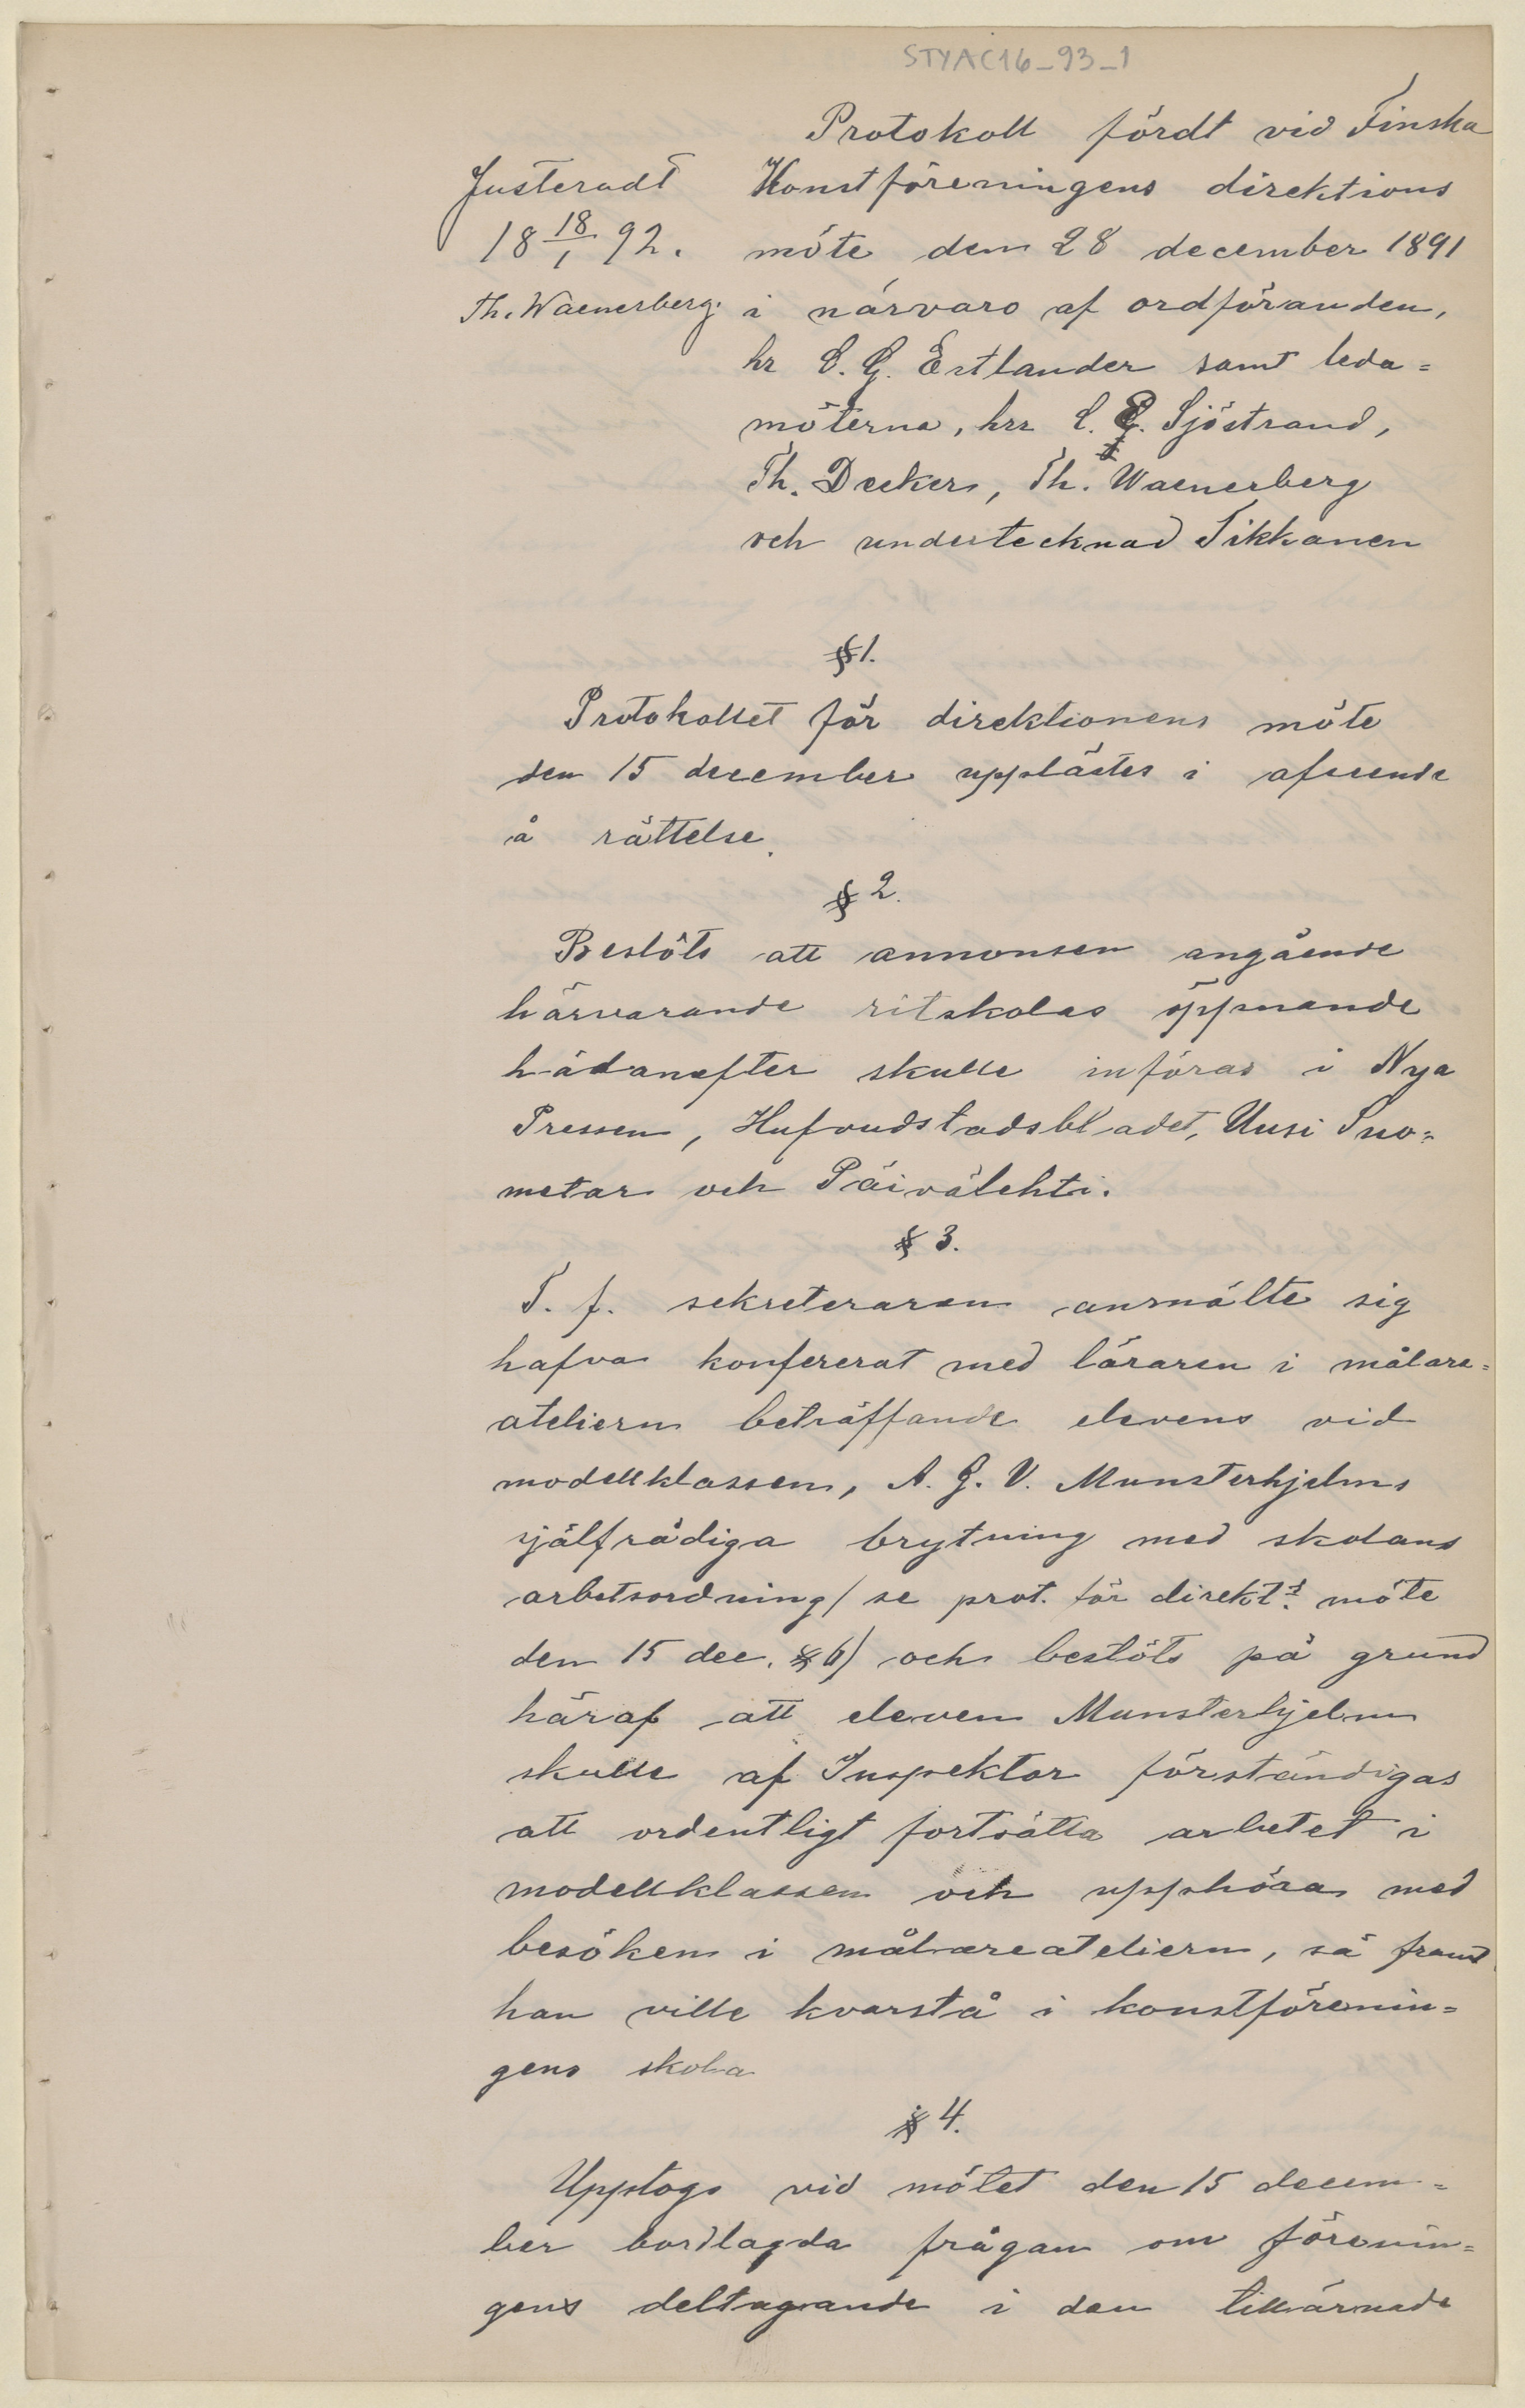 STYAC16_93_1
Protokoll fördt vid Finska
Konstföreningens direktions
möte den 28 december 1891
i närvaro af ordföranden,
hr C. G. Estlander samt leda=
möterna, hrr C. E. Sjöstrand,
Th. Decker, Th. Waenerberg
och undertecknad Tikkanen
Justeradt
18 18/1 92.
Th. Waenerberg.
§ 1.
Protokollet för direktionens möte
den 15 december upplästes i afseende
å rättelse.
§ 2.
Beslöts att annonsen angående
härvarande ritskolas öppnande
hädanefter skulle införas i Nya
Pressen, Hufvudstadsbladet, Uusi Suo=
metar och Päivälehti.
§ 3.
T. f. sekreteraren anmälte sig
hafva konfererat med läraren i målare=
ateliern beträffande elevens vid
modellklassen, A. G. V. Munsterhjelms
själfrådiga brytning med skolans
arbetsordning/ se prot. för direkt:s möte
den 15 dec. § 6/ och beslöts på grund
häraf att eleven Munsterhjelm
skulle af Inspektor förständigas
att ordentligt fortsätta arbetet i
modellklassen och upphöra med
besöken i målareateliern, så framt
han ville kvarstå i konstförenin=
gens skola
§ 4.
Upptogs vid mötet den 15 decem=
ber bordlagda frågan om förenin=
gens deltagande i den tillärnade